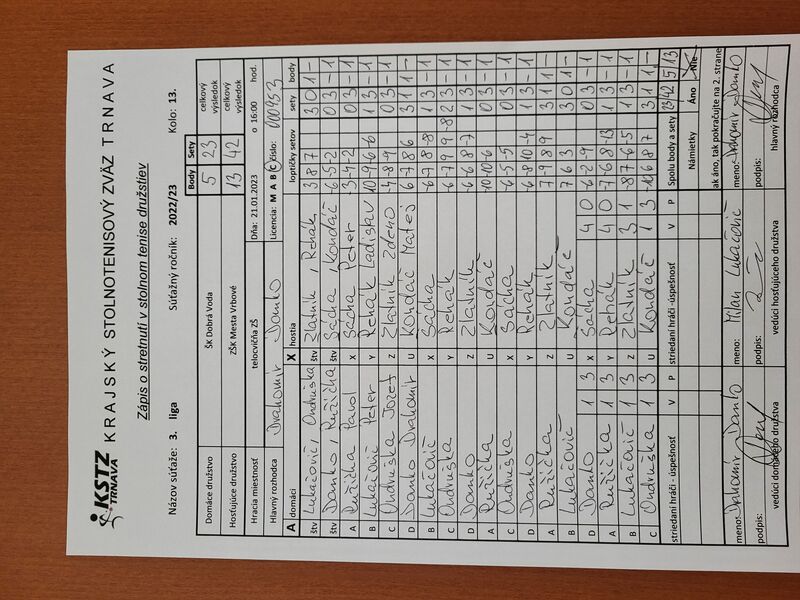 KSTZ
TRNAVA
KRAJSKÝ STOLNOTENISOVÝ ZVÄZ TRNAVA
Zápis o stretnutí v stolnom tenise družstiev
Názov súťaže: 3. liga Súťažný ročník: 2022/23 Kolo: 13.
Body Sety
Domáce družstvo ŠK Dobrá Voda 5 23 celkový výsledok
Hosťujúce družstvo ZŠK Mesta Vrbové 13 42 celkový výsledok
Hracia miestnosť telocvičňa ZŠ Dňa: 21.01.2023 o 16:00 hod.
Hlavný rozhodca Drahomír Danko Licencia: M A B C číslo: 000953
A domáci X hostia loptičky setov sety body
štv Lukačovič, Ondruška štv Zlatník, Rehák 3 8 7 3 0 1 -
štv Danko, Ružička štv Sacha, Kondáč -6 -5 -2 0 3 - 1
A Ružička Pavol X Sacha Peter -3 -4 -2 0 3 - 1
B Lukačovič Peter Y Rehák Ladislav 10 -9 -6 -6 1 3 - 1
C Ondruška Jozef Z Zlatník Zdeno -4 -8 -9 0 3 - 1
D Danko Drahomír U Kondáč Matej 6 -7 8 6 3 1 1 -
B Lukačovič X Sacha -6 7 -8 -8 1 3 - 1
C Ondruška Y Rehák 2 3 - 1
D Danko Z Zlatník -6 -6 8 -7 1 3 - 1
A Ružička U Kondáč -10 -10 -6 0 3 - 1
C Ondruška X Sacha -6 -5 -5 0 3 - 1
D Danko Y Rehák -6 -8 10 -4 1 3 - 1
A Ružička Z Zlatník 3 1 1 -
B Lukačovič U Kondáč 7 6 3 3 0 1 -
D Danko 1 3 X Sacha 4 0 -6 -2 -9 0 3 - 1
A Ružička 1 3 Y Rehák 4 0 -7 6 -8 -13 1 3 - 1
B Lukačovič 1 3 Z Zlatník 3 1 -8 7 -6 -5 1 3 - 1
C Ondruška 1 3 U Kondáč 1 3 -10 6 8 7 3 1 1 -
striedaní hráči - úspešnosť V P striedaní hráči - úspešnosť V P Spolu body a sety 23 42 5 13
Námietky Áno Nie
ak áno, tak pokračujte na 2. strane
meno: Drahomír Danko meno: Milan Lukačovič meno: Drahomír Danko
podpis: podpis: podpis:
vedúci domáceho družstva vedúci hosťujúceho družstva hlavný rozhodca